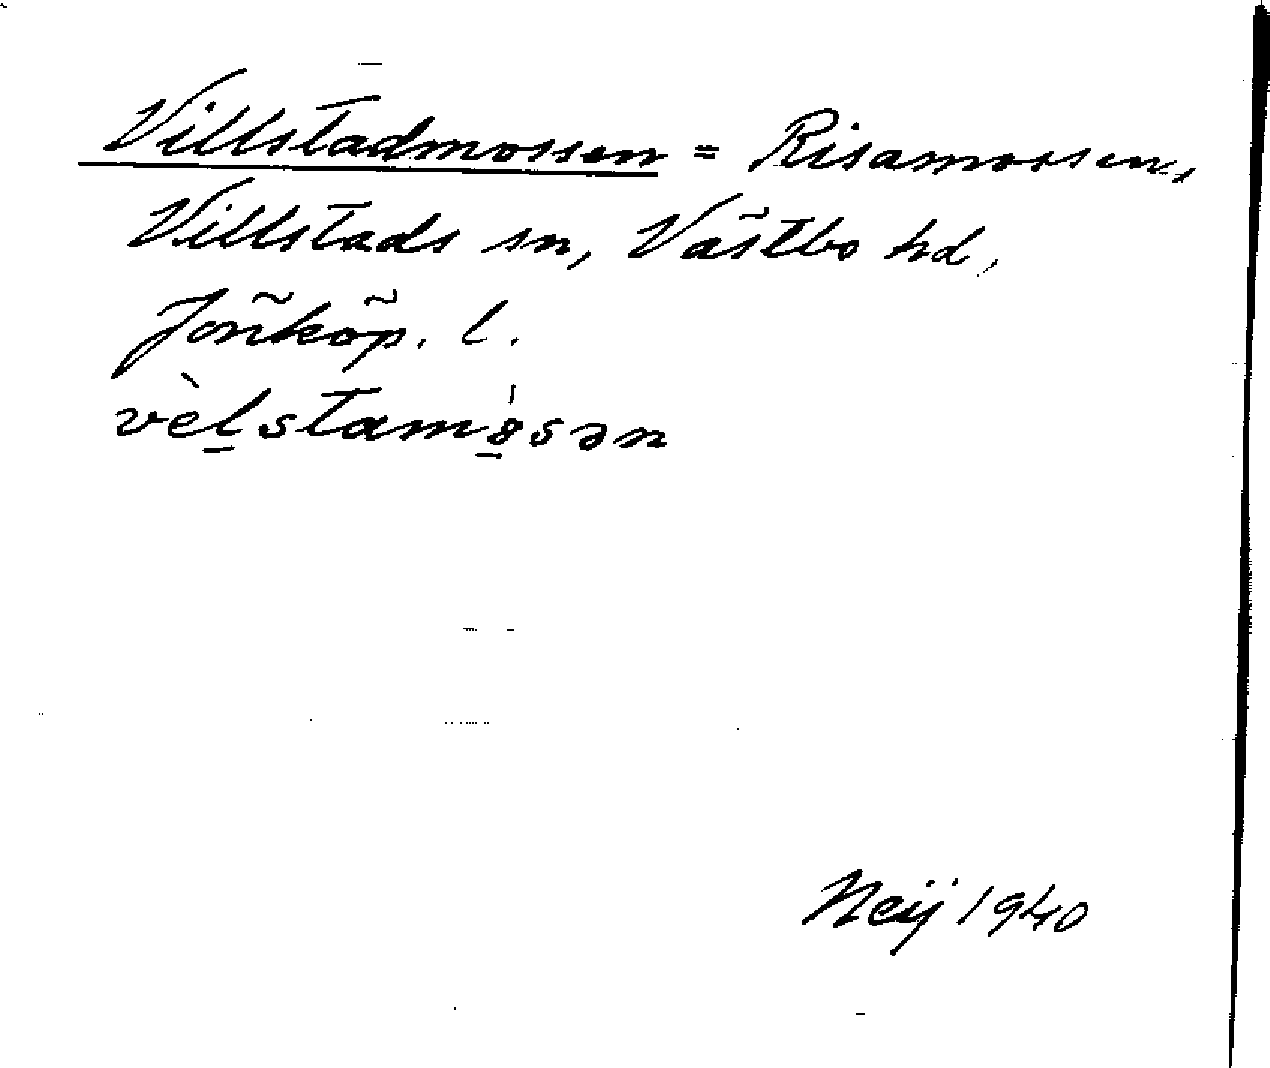 Villstadmossen = Risamossen,
Villstads sn, Västbo hd,
Jönköp. l.
vèl̠stamȯ̠sən
Neij 1940